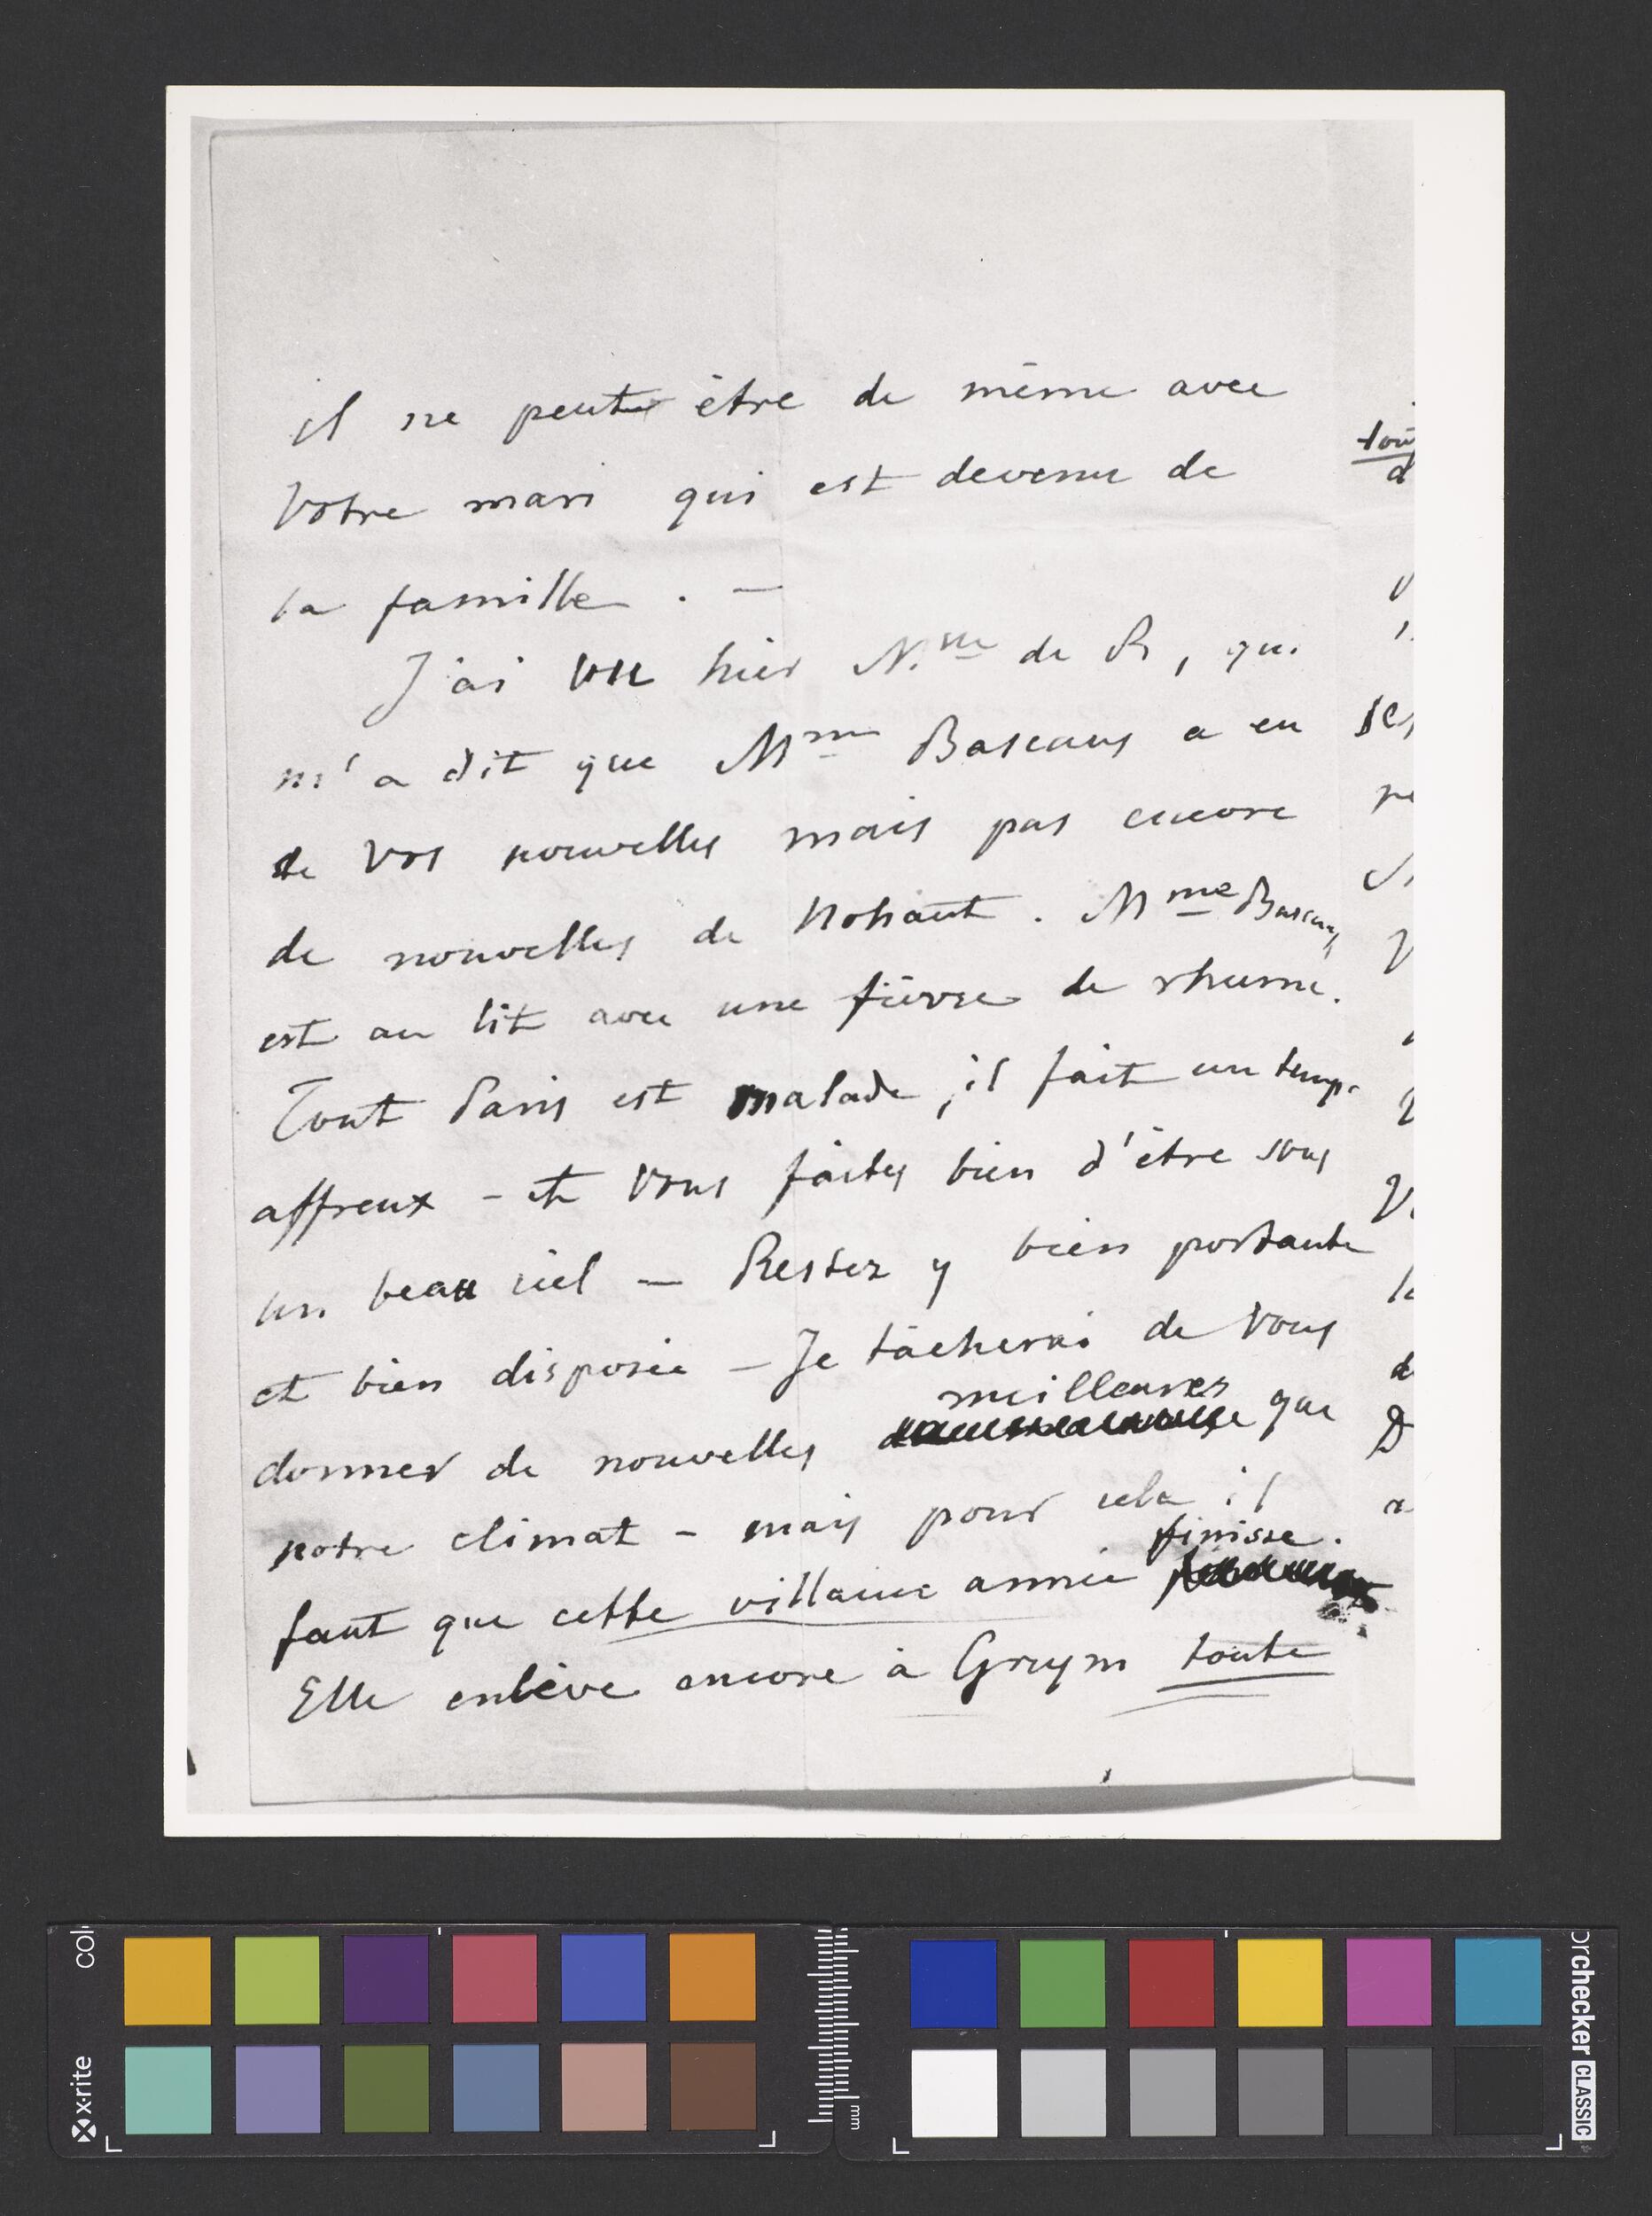 il ne peut être de même avec
Votre mari qui est devenu de
la famille . —
J'ai vu hier Mme de R, qui
m'a dit que Mme Bascans a eu
de Vos nouvelles mais pas encore
de nouvelles de Nohant . Mme Bascans
est au lit avec une fièvre de rhume.
Tout Paris est malade, il fait un temps
affreux - et Vous faites bien d'être sous
un beau ciel — Restez y bien portante
et bien disposée — Je tâcherai de Vous
donner de nouvelles meilleures que
notre climat - mais pour cela il
faut que cette villaine année finisse.
Elle enlève encore à Grzym toute
x-rite
mm
orchecker CLASSIC